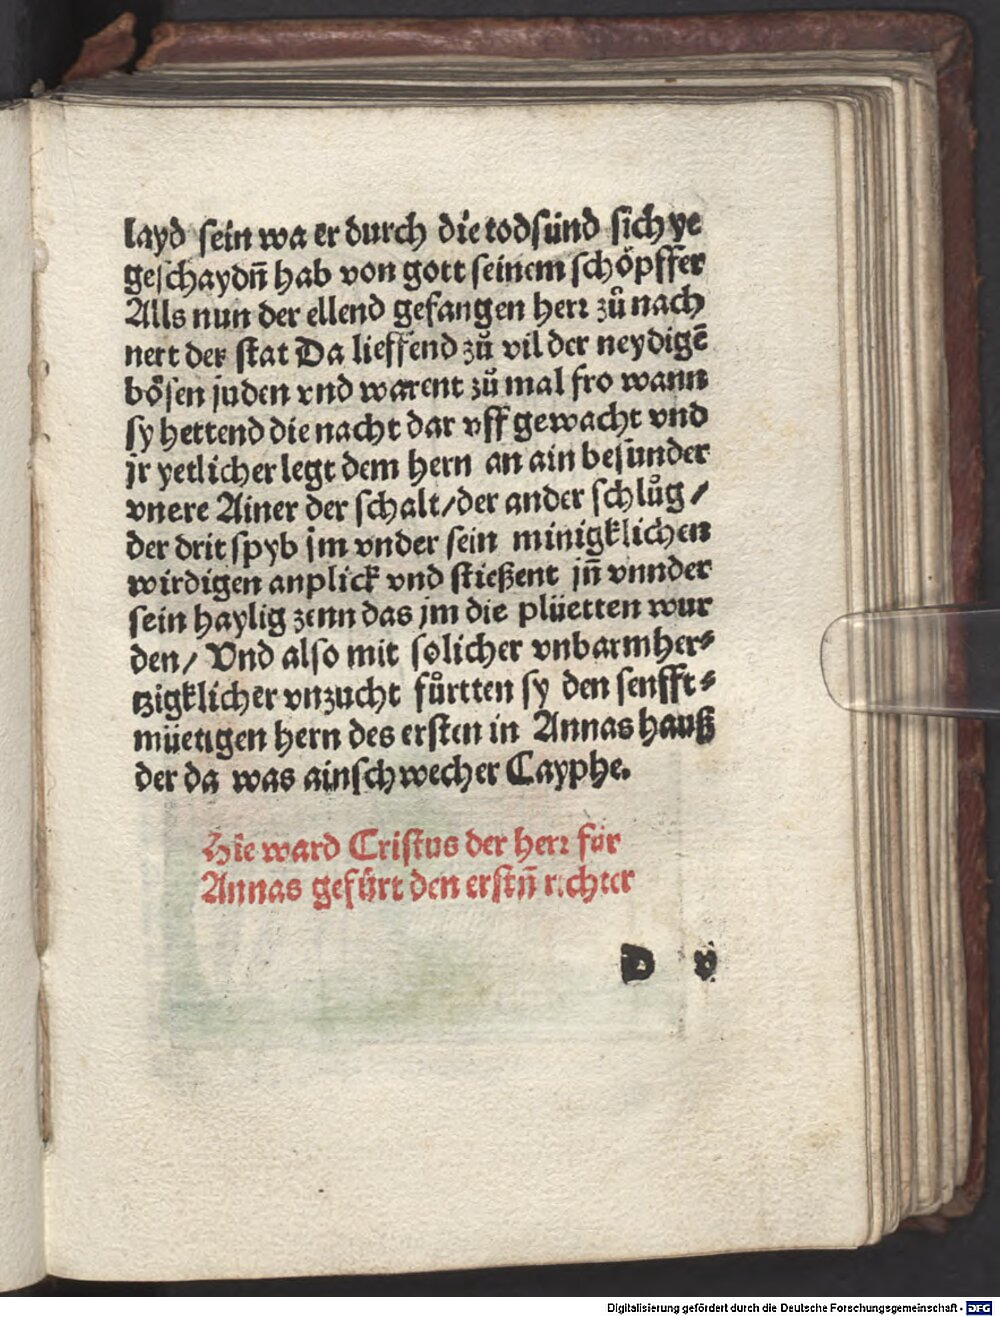 layd sein wa er durch die todsünd sich ye
geschaydn̄ hab von gott seinem schöpffer
Alls nun der ellend gefangen herꝛ zů nach
nert der stat Da lieffend zů vil der neydigē
bösen juden vnd warent zů mal fro wann
sy hettend die nacht dar vff gewacht vnd
jr yetlicher legt dem hern an ain besunder
vnere Ainer der schalt/der ander schlůg/
der drit spyb jm vnder sein minigklichen
wirdigen anplick vnd stießent jn̄ vnnder
sein haylig zenn das jm die plüetten wur
den/ Vnd also mit solicher vnbarmher⸗
tzigklicher vnzucht fůrtten sy den senfft⸗
müetigen hern des ersten in Annas hauß
der da was ainschwecher Cayphe.
Hie ward Cristus der herꝛ für
Annas gefürt den erstn̄ richter
D v
Digitalisierung gefördert durch die Deutsche Forschungsgemeinschaft - DFG